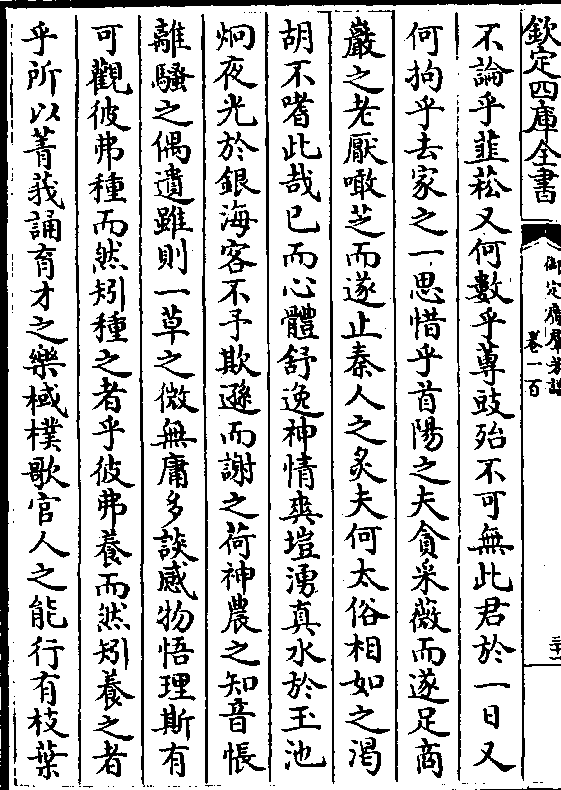 欽定四庫全書
御定廣羣芳譜
卷一百
三十一
不論乎韮菘又何數乎蓴豉殆不可無此君於一日又
何拘乎去家之一思惜乎首陽之夫貪采薇而遂足商
巖之老厭噉芝而遂止秦人之炙夫何太俗相如之渴
胡不嗜此哉已而心體舒逸神情爽塏湧真水於玉池
炯夜光於銀海客不予欺遜而謝之荷神農之知音悵
離騷之偶遺雖則一草之微無庸多談感物悟理斯有
可觀彼弗種而然矧種之者乎彼弗養而然矧養之者
乎所以菁莪誦育才之樂棫樸歌官人之能行有枝葉